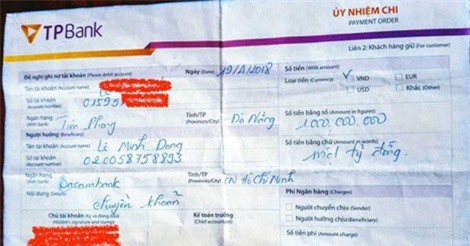 TPBank
ỦY NHIỆM CHI
PAYMENT ORDER
Liên 2: Khách hàng giữ (For customer)
Đề nghị ghi nợ tài khoản (Please debit account)
Ngày (Date) 2018
Số tiền (With amount)
Tên tài khoản (Account name)
Loại tiền (Currency) VND EUR
Số tài khoản (Account number) 01599
USD Khác (Other)
Ngân hàng (Bank) Tiên Phong
Tỉnh/TP (Province/City) Đà Nẵng
Số tiền bằng số (Amount in figures)
1.000.000.000
Người hưởng (Beneficiary)
Tên tài khoản (Account name) Lê Minh
Số tiền bằng chữ (Amount in words)
một tỷ đồng
Số tài khoản (Account number) 020058758893
Ngân hàng (Bank) Sacombank
Tỉnh/TP (Province/City) CN Hồ Chí Minh
Nội dung (Details) chuyển khoản
Phí Ngân hàng (Charges)
Người chuyển chịu (Sender)
Chủ tài khoản
Kế toán trưởng
Người hưởng chịu (Beneficiary)
(Chief accountant)
Số tiền phí (Amount charges)